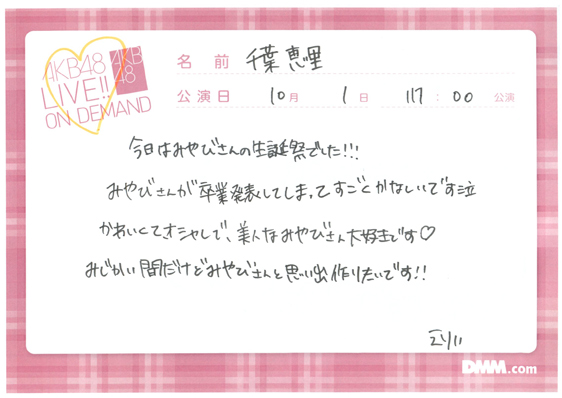 AKB48
LIVE!!
ON DEMAND
AKB
48
名前 千葉恵里
公演日 10月 1日 17:00 公演
今日はみやびさんの生誕祭でした!!!
みやびさんが卒業発表してしまってすごくかなしいです泣
かわいくてオシャレで、美人なみやびさん大好きです♡
みじかい間だけどみやびさんと思い出作りたいです!!
えりい
DMM.com